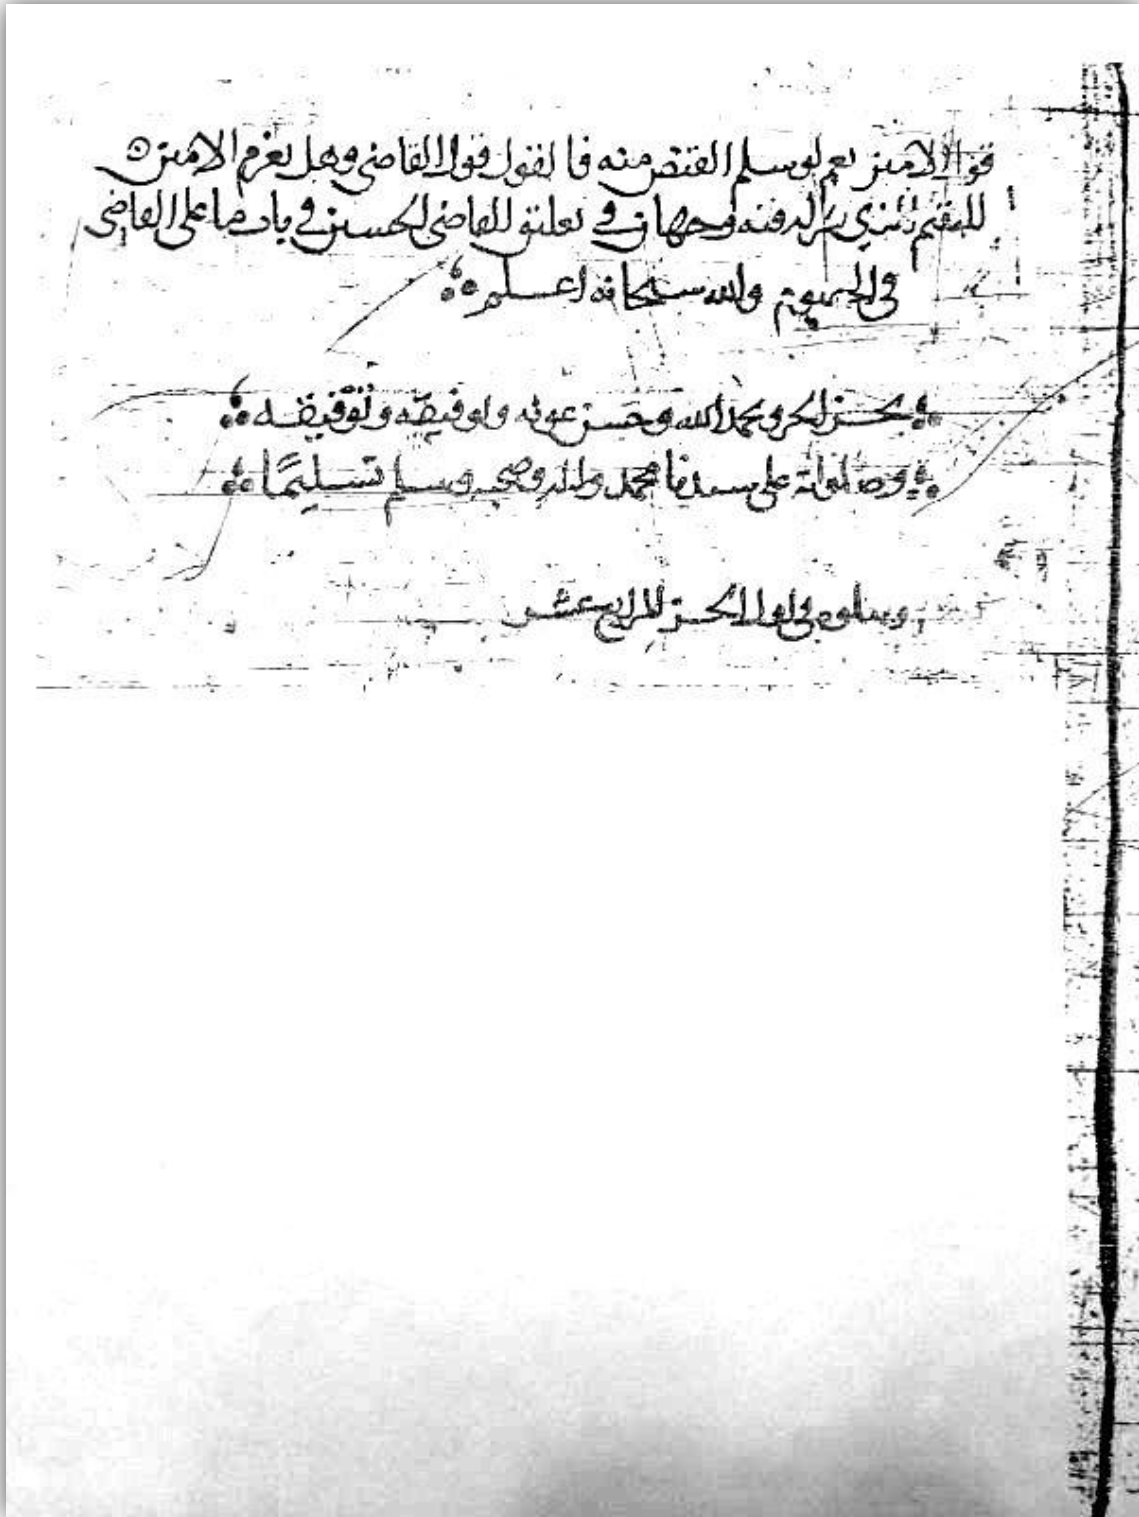 قول الامين نعم لو سلم القبض منه فالقول قول القاضي وهل يغرم الامين
للمقيم الذي فيه وجهان في تعليق القاضي الحسين في باب ما على القاضي
في الخصوم والله سبحانه اعلم
نجز الجزء بحمد الله وحسن عونه وتوفيقه
وصلواته على سيدنا محمد واله وصحبه وسلم تسليمًا
ويتلوه في اول الجزء الرابع عشر